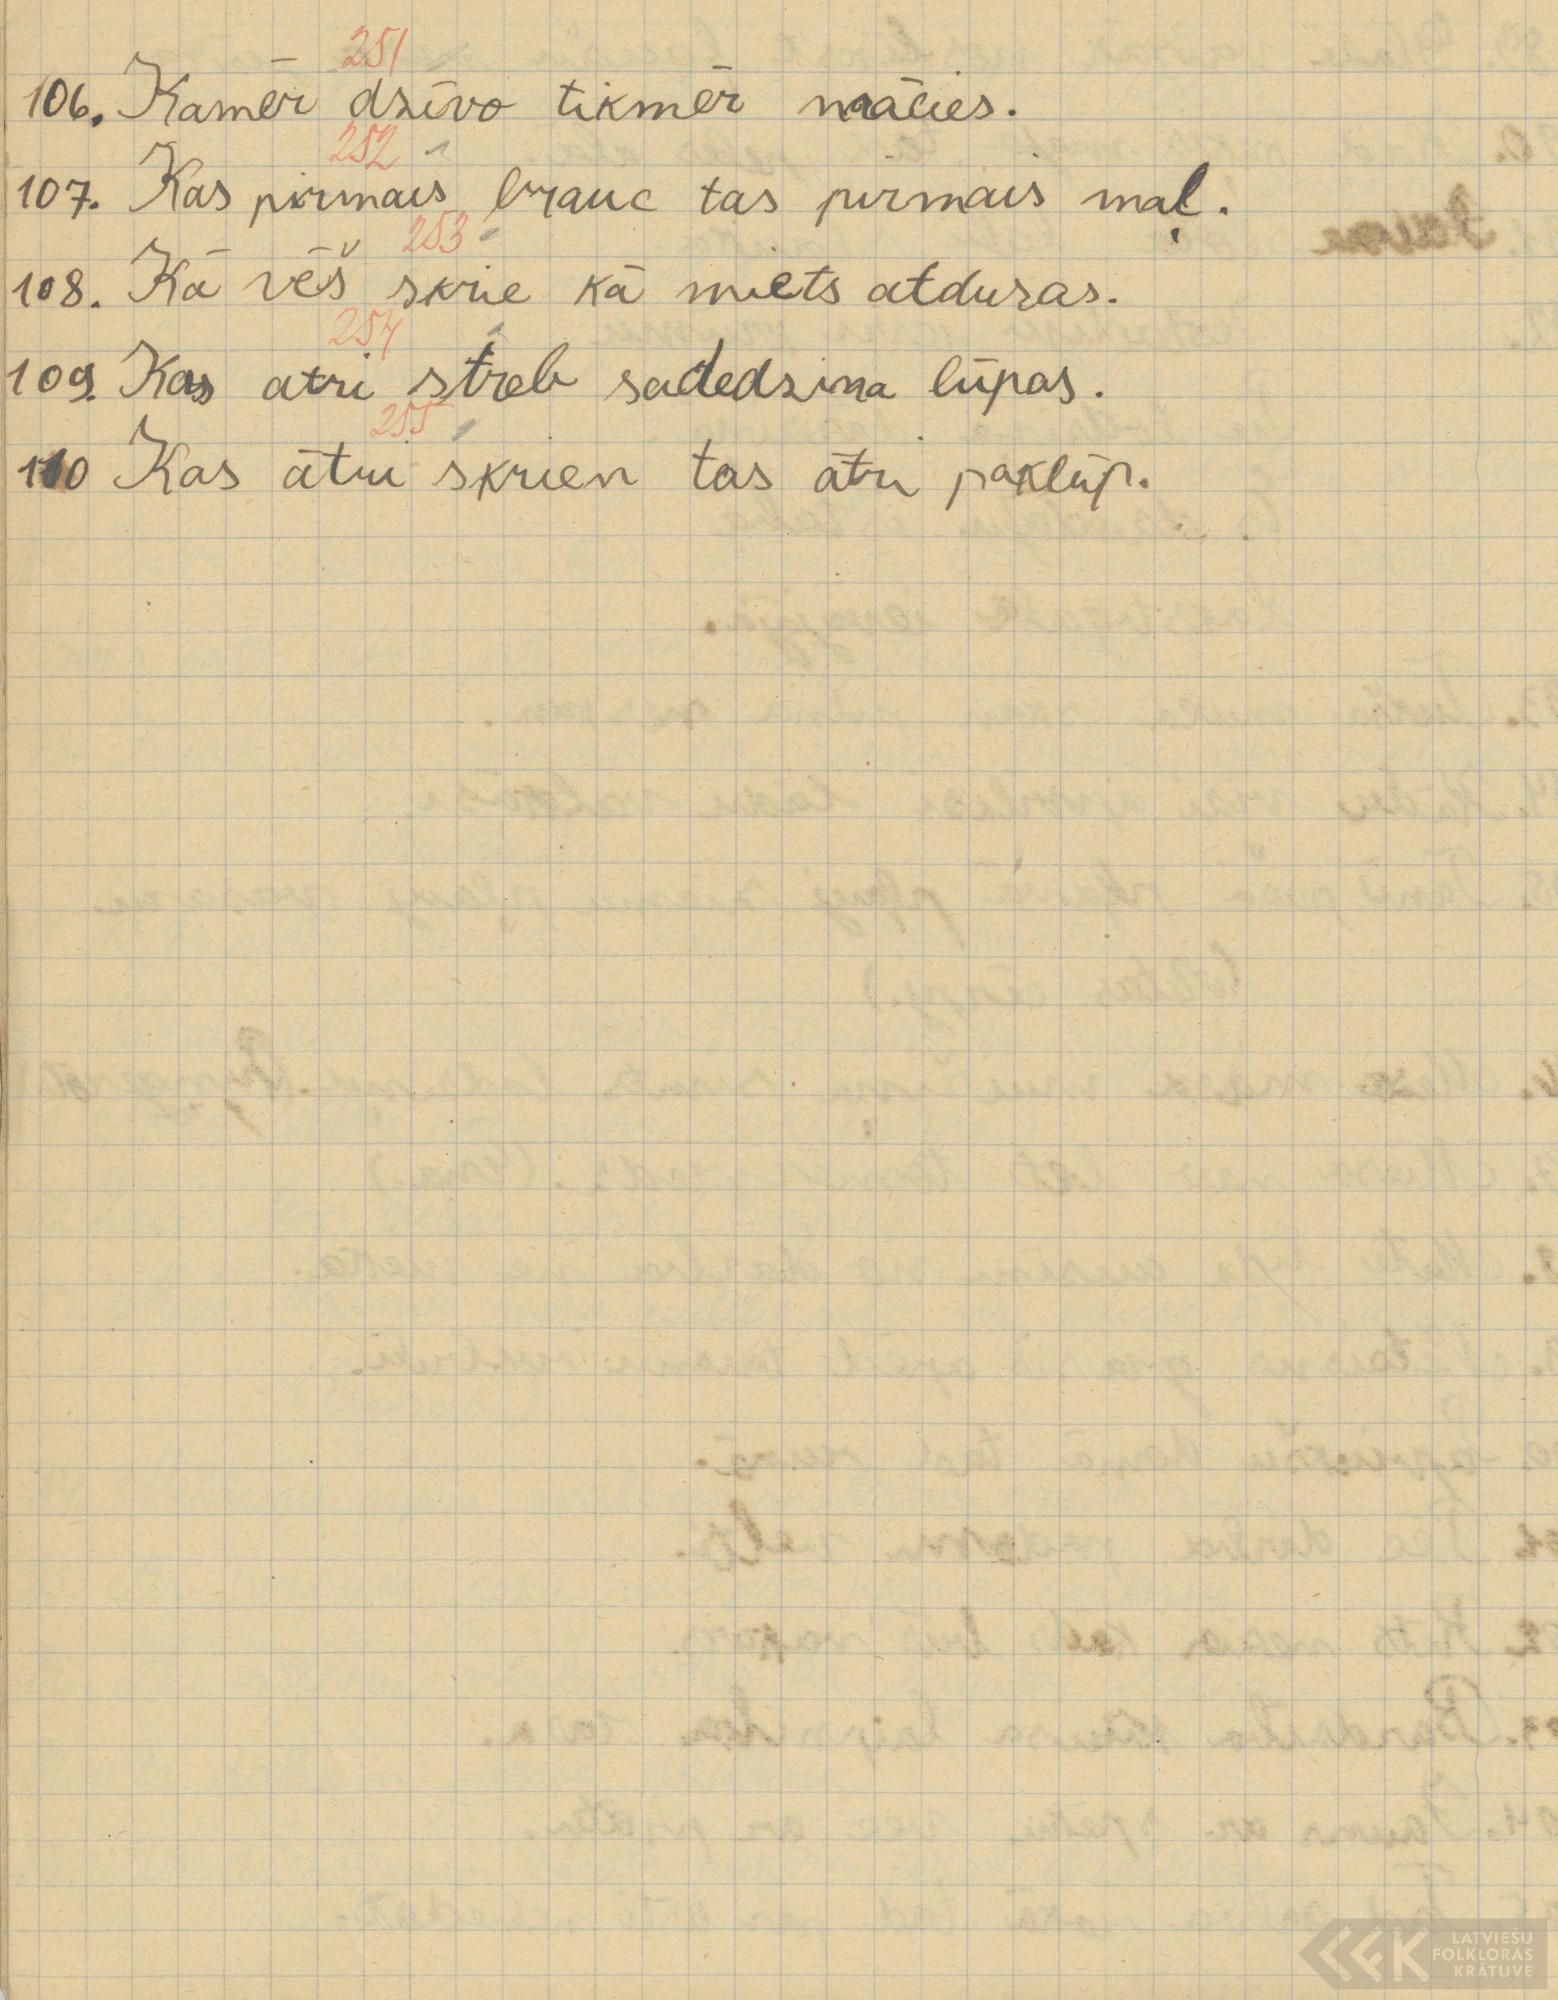 251
106. Kamēr dzīvo tikmēr mācies.
252
107. Kas pirmais brauc tas pirmais maļ.
253
108. Kā vēš skrie kā miets atduras.
254
109. Kas atri streb sadedzina lūpas.
255
110 Kas ātri skrien tas ātri paklūp.
LATVIEŠU
FOLKLORAS
KRĀTUVE